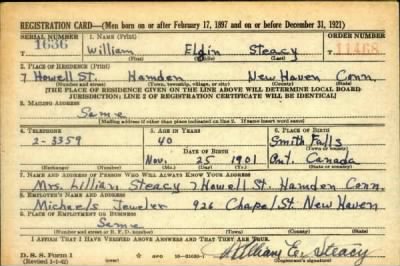 REGISTRATION CARD—(Men born on or after February 17, 1897 and on or before December 31, 1921)
SERIAL NUMBER 1. NAME (Print) ORDER NUMBER
1636 William Eldin Steacy 11468
(First) (Middle) (Last)
2. PLACE OF RESIDENCE (Print)
7 Howell St. Hamden New Haven Conn.
(Number and street) (Town, township, village, or city) (County) (State)
[THE PLACE OF RESIDENCE GIVEN ON THE LINE ABOVE WILL DETERMINE LOCAL BOARD
JURISDICTION; LINE 2 OF REGISTRATION CERTIFICATE WILL BE IDENTICAL]
3. MAILING ADDRESS
Same
[Mailing address if other than place indicated on line 2. If same insert word same]
4. TELEPHONE 5. AGE IN YEARS 6. PLACE OF BIRTH
2-3359 40 Smith Falls
DATE OF BIRTH (Town or county)
Nov. 25 1901 Ont. Canada
(Exchange) (Number) (Mo.) (Day) (Yr.) (State or country)
7. NAME AND ADDRESS OF PERSON WHO WILL ALWAYS KNOW YOUR ADDRESS
Mrs. Lillian Steacy 7 Howell St. Hamden Conn.
8. EMPLOYER'S NAME AND ADDRESS
Michaels Jeweler 926 Chapel St. New Haven
9. PLACE OF EMPLOYMENT OR BUSINESS
Same
(Number and street or R. F. D. number) (Town) (County) (State)
I AFFIRM THAT I HAVE VERIFIED ABOVE ANSWERS AND THAT THEY ARE TRUE.
D. S. S. Form 1
(Revised 1-1-42) (over) GPO William E. Steacy
(Registrant's signature)